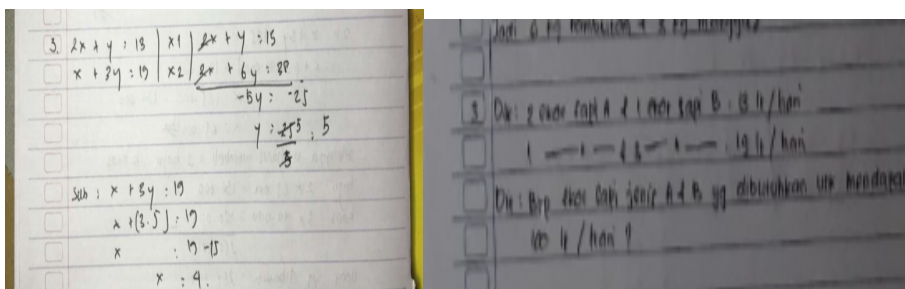 3. 2x + y : 13 | x1 | 2x + y : 13
x + 3y : 19 | x2 | 2x + 6y : 38
-5y : -25
y : 25 5 : 5
5
sub : x + 3y : 19
x + (3.5) : 19
x : 19 - 15
x : 4.
Jadi 6 kg rambutan &
3 Dik : 2 ekor sapi A & 1 ekor sapi B : 13 lt / hari
1 — " — & 3 — " — : 19 lt / hari
Dit : Brp ekor sapi jenis A & B yg dibutuhkan utk mendapat
100 lt / hari ?